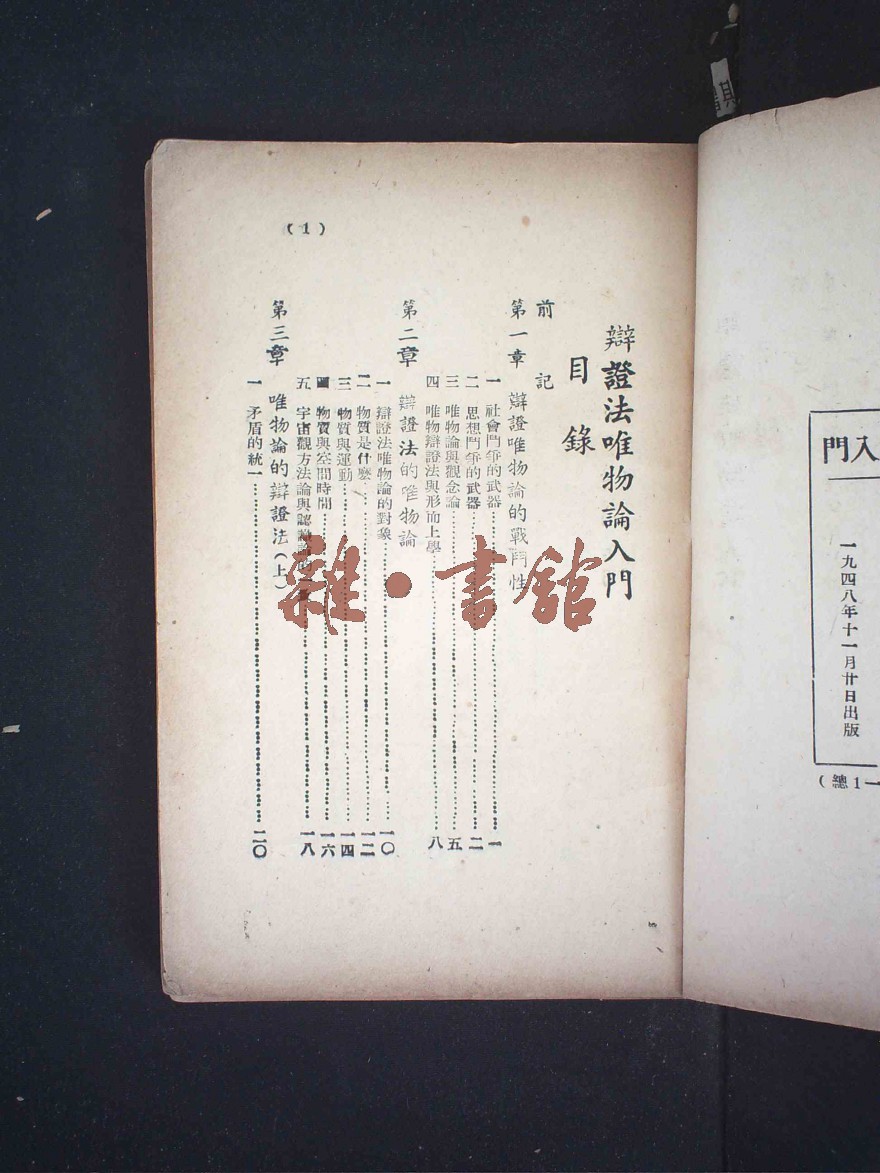 門入
一九四八年十一月廿日出版
(總1一
辯證法唯物論入門
目錄
前記
第一章 辯證唯物論的戰鬥性
一 社會鬥爭的武器……一
二 思想鬥爭的武器……二
三 唯物論與觀念論……五
四 唯物辯證法與形而上學……八
第二章 辯證法的唯物論
一 辯證法唯物論的對象……一〇
二 物質是什麼……一二
三 物質與運動……一四
四 物質與空間時間……一六
五 宇宙觀方法論與認識論的……一八
第三章 唯物論的辯證法(上)
一 矛盾的統一……二〇
(1)
雜·書館